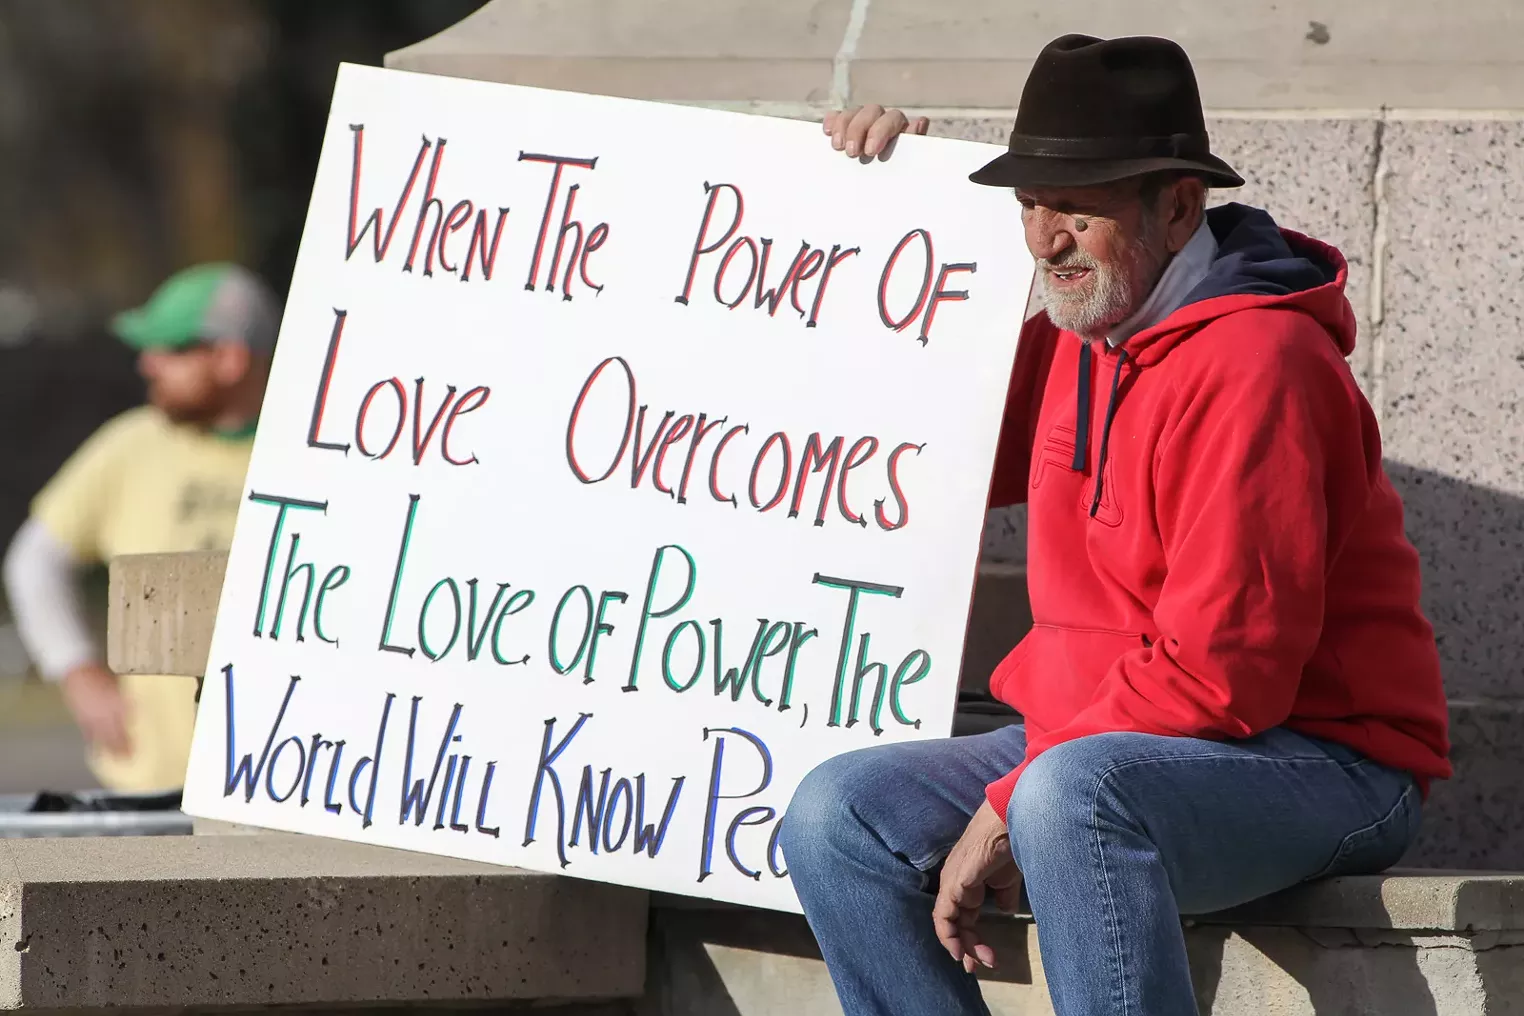 When The Power Of
Love Overcomes
The Love Of Power, The
World Will Know